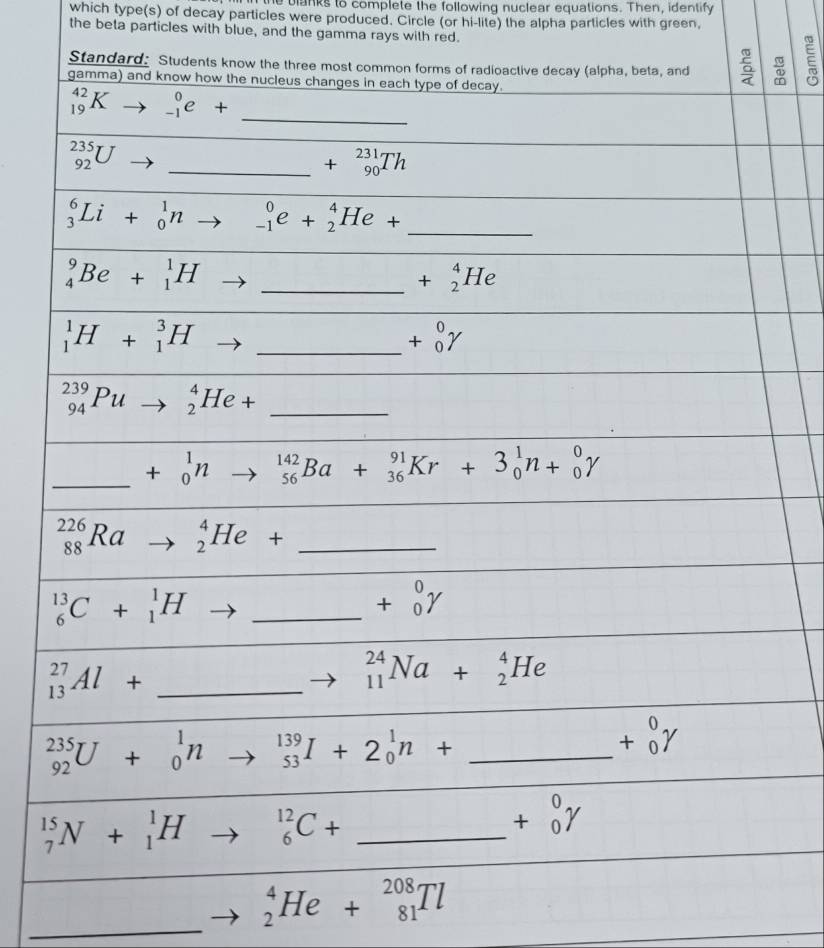 the blanks to complete the following nuclear equations. Then, identify
which type(s) of decay particles were produced. Circle (or hi-lite) the alpha particles with green,
the beta particles with blue, and the gamma rays with red.
Standard: Students know the three most common forms of radioactive decay (alpha, beta, and
gamma) and know how the nucleus changes in each type of decay.
Alpha
Beta
Gamma
⁴²₁₉K → ⁰₋₁e + ____
²³⁵₉₂U → ____ + ²³¹₉₀Th
⁶₃Li + ¹₀n → ⁰₋₁e + ⁴₂He + ____
⁹₄Be + ¹₁H → ____ + ⁴₂He
¹₁H + ³₁H → ____ + ⁰₀γ
²³⁹₉₄Pu → ⁴₂He + ____
____ + ¹₀n → ¹⁴²₅₆Ba + ⁹¹₃₆Kr + 3¹₀n + ⁰₀γ
²²⁶₈₈Ra → ⁴₂He + ____
¹³₆C + ¹₁H → ____ + ⁰₀γ
²⁷₁₃Al + ____ → ²⁴₁₁Na + ⁴₂He
²³⁵₉₂U + ¹₀n → ¹³⁹₅₃I + 2¹₀n + ____ + ⁰₀γ
¹⁵₇N + ¹₁H → ¹²₆C + ____ + ⁰₀γ
____ → ⁴₂He + ²⁰⁸₈₁Tl